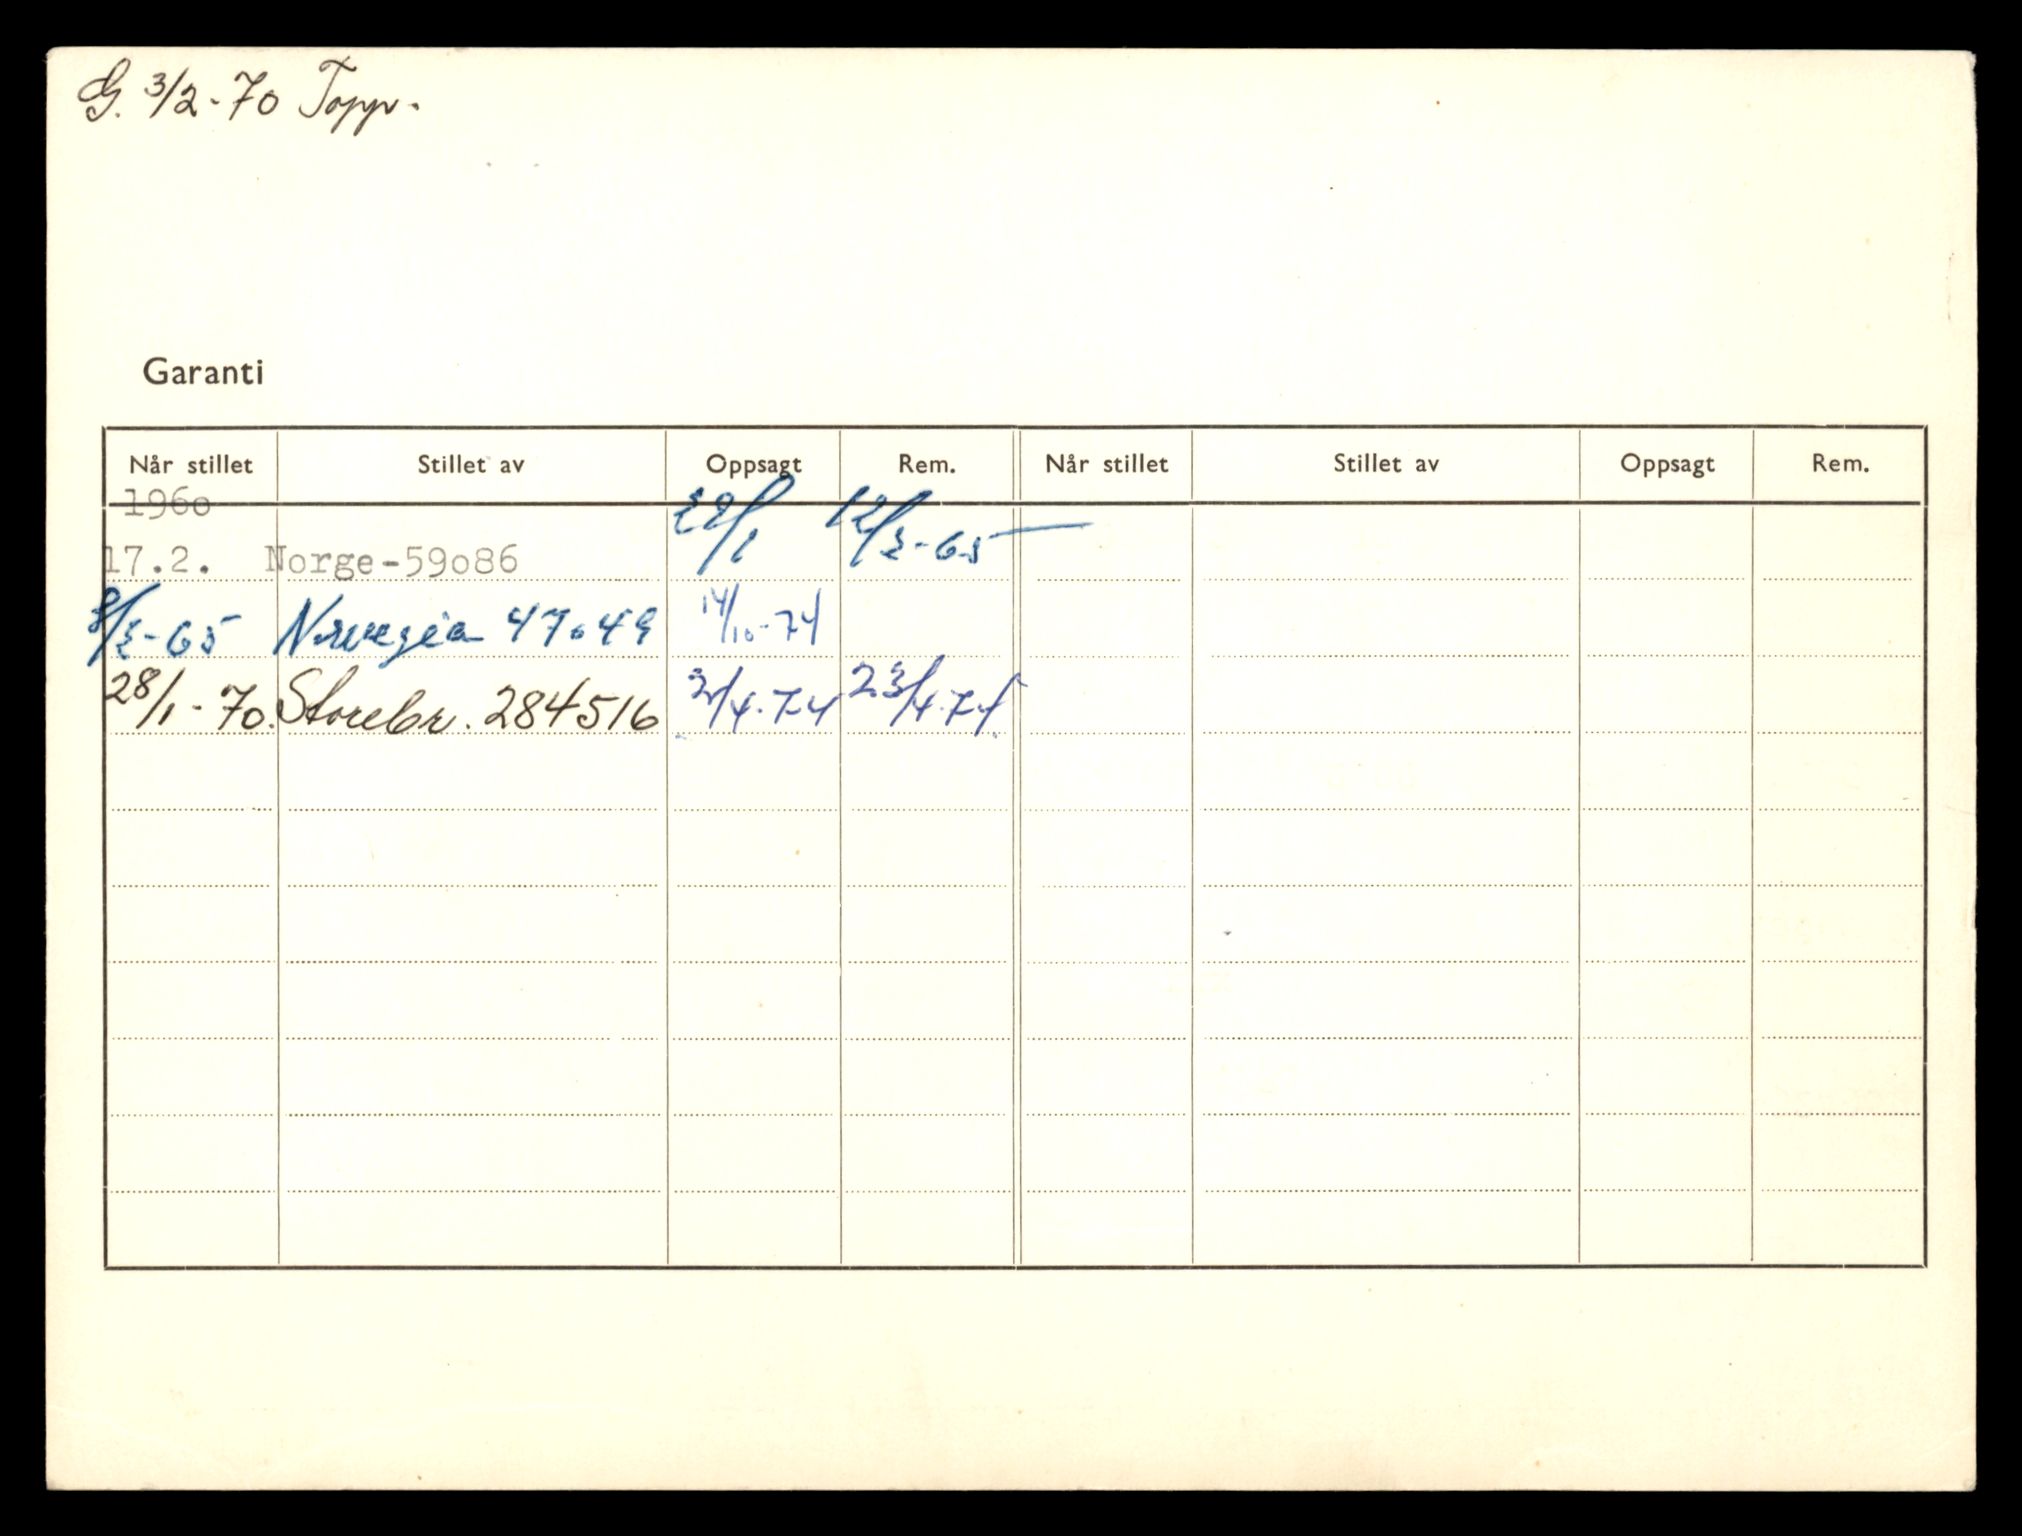 G. 3/2-70 Topp.
Garanti
Når stillet Stillet av Oppsagt Rem. Når stillet Stillet av Oppsagt Rem.
1960
17.2. Norge-59086 29/1 12/2-65
8/2-65 Norvegia 47049 14/10-74
28/1-70. Storebr. 284516 2/4-74 23/4-74